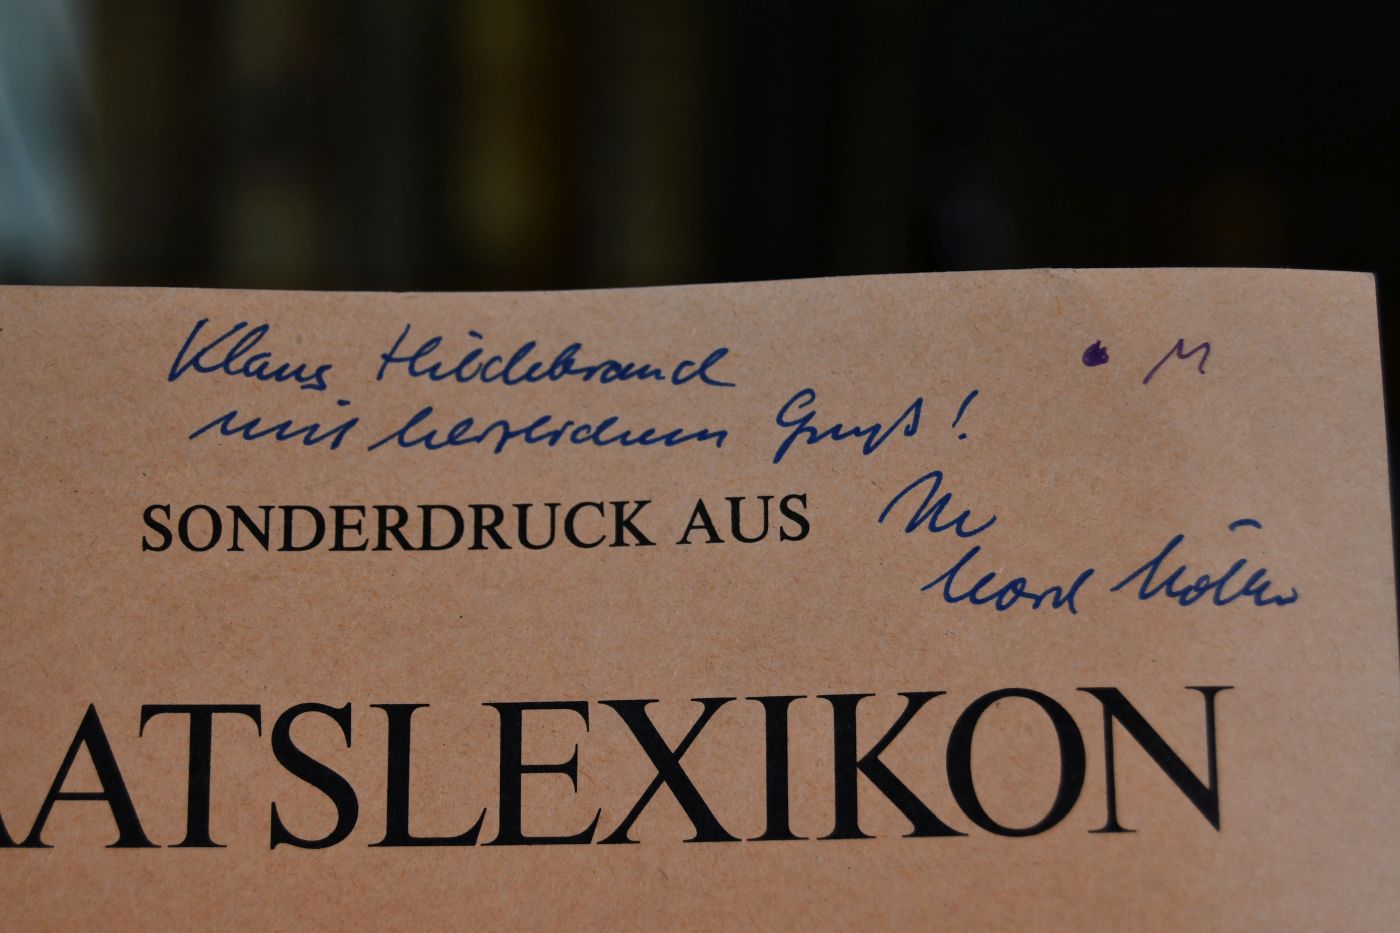 Klaus Hildebrand
M
mit herzlichem Gruß!
SONDERDRUCK AUS
Ihr
Horst Möller
AATSLEXIKON